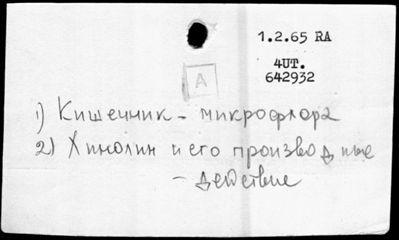 1.2.65 RA
4UT.
642932
A
1) Кишечник - микрофлора
2) Хинолин и его производные
- действие